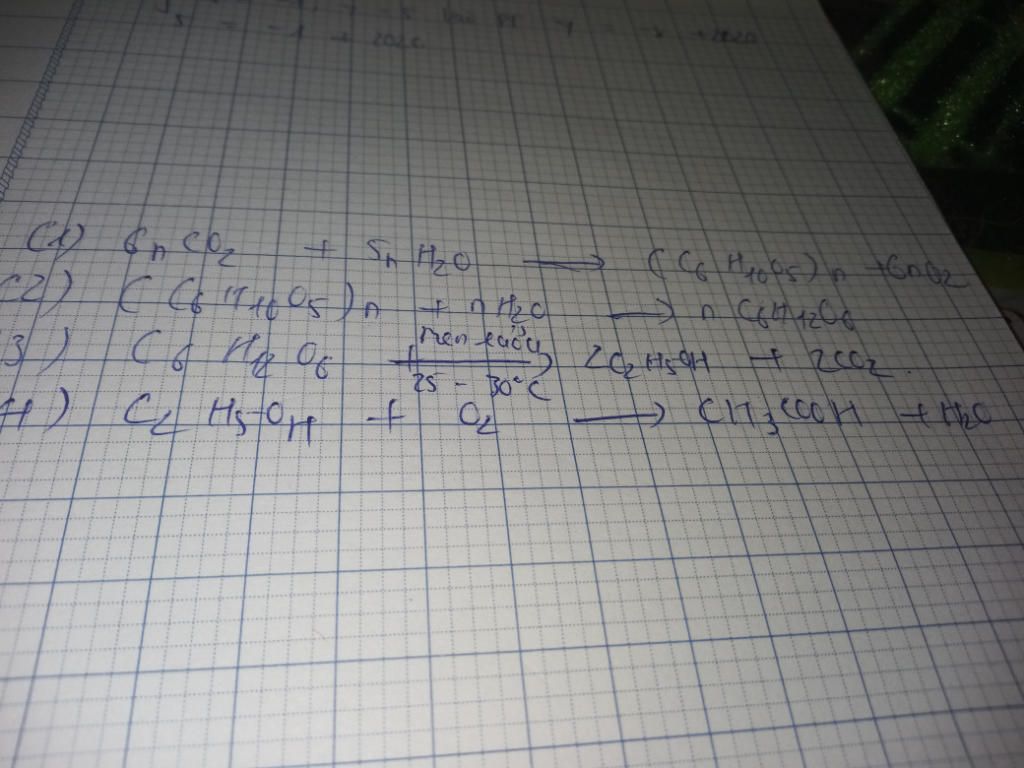 (1) 6nCO2 + 5nH2O → (C6H10O5)n + 6nO2
(2) (C6H10O5)n + nH2O → nC6H12O6
3) C6H12O6 men rượu → 2C2H5OH + 2CO2.
25 - 30°C
4) C2H5OH + O2 → CH3COOH + H2O